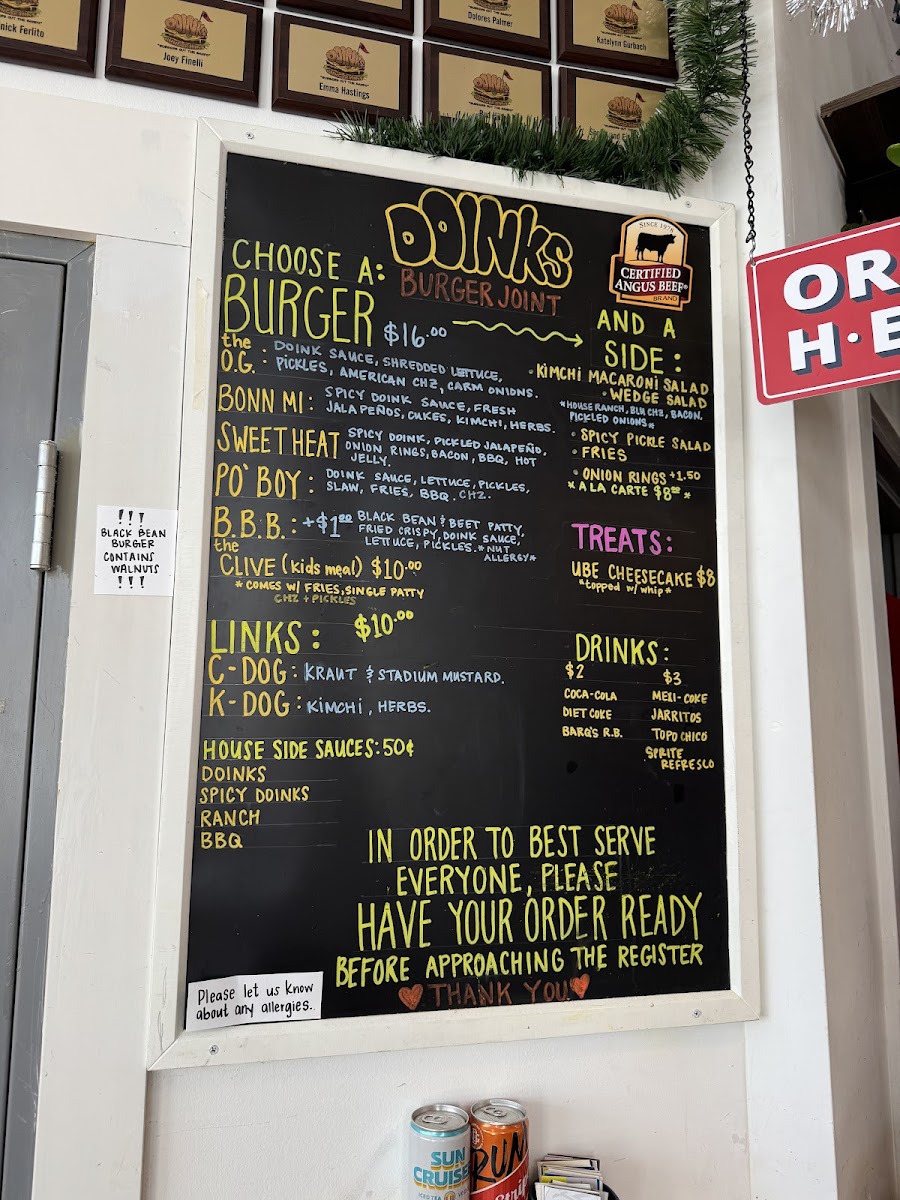 nick Ferlito
Joey Finelli
Emma Hastings
Dolores Palmer
Katelynn Gurbach
DOINKS
BURGER JOINT
SINCE 1978
CERTIFIED
ANGUS BEEF®
BRAND
CHOOSE A:
BURGER $16.00
the
O.G. : DOINK SAUCE, SHREDDED LETTUCE,
PICKLES, AMERICAN CHZ, CARM ONIONS.
BONN MI: SPICY DOINK SAUCE, FRESH
JALAPEÑOS, CUKES, KIMCHI, HERBS.
SWEET HEAT SPICY DOINK, PICKLED JALAPEÑO,
ONION RINGS, BACON, BBQ, HOT
JELLY.
PO' BOY: DOINK SAUCE, LETTUCE, PICKLES,
SLAW, FRIES, BBQ, CHZ.
B.B.B.: +$1.00 BLACK BEAN & BEET PATTY,
FRIED CRISPY, DOINK SAUCE,
LETTUCE, PICKLES. *NUT
ALLERGY*
the
CLIVE (kids meal) $10.00
* COMES W/ FRIES, SINGLE PATTY
CHZ + PICKLES
LINKS: $10.00
C-DOG: KRAUT & STADIUM MUSTARD.
K-DOG: KIMCHI, HERBS.
HOUSE SIDE SAUCES: 50¢
DOINKS
SPICY DOINKS
RANCH
BBQ
AND A
SIDE:
• KIMCHI MACARONI SALAD
• WEDGE SALAD
*HOUSE RANCH, BLU CHZ, BACON,
PICKLED ONIONS*
• SPICY PICKLE SALAD
• FRIES
• ONION RINGS +1.50
* A LA CARTE $8.00 *
TREATS:
UBE CHEESECAKE $8
*topped w/ whip*
DRINKS:
$2
COCA-COLA
DIET COKE
BARQ'S R.B.
$3
MEXI-COKE
JARRITOS
TOPO CHICO
SPRITE
REFRESCO
IN ORDER TO BEST SERVE
EVERYONE, PLEASE
HAVE YOUR ORDER READY
BEFORE APPROACHING THE REGISTER
THANK YOU
Please let us know
about any allergies.
!!!
BLACK BEAN
BURGER
CONTAINS
WALNUTS
!!!
OR
H•E
SUN
CRUISE
ICED TEA
RUN